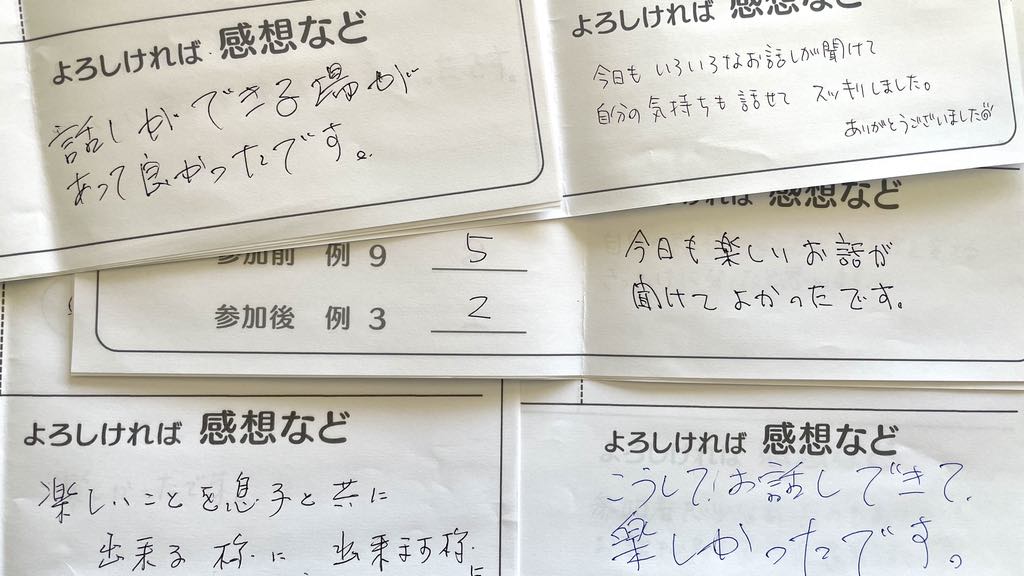 よろしければ 感想など
話しができる場が
あって良かったです。
よろしければ 感想など
今日も いろいろなお話しが聞けて
自分の気持ちも話せて スッキリしました。
ありがとうございました
参加前 例 9 5
参加後 例 3 2
感想など
今日も楽しいお話が
聞けてよかったです。
よろしければ 感想など
楽しいことを息子と共に
出来る様に 出来ます様
よろしければ 感想など
こうしてお話しできて、
楽しかったです。